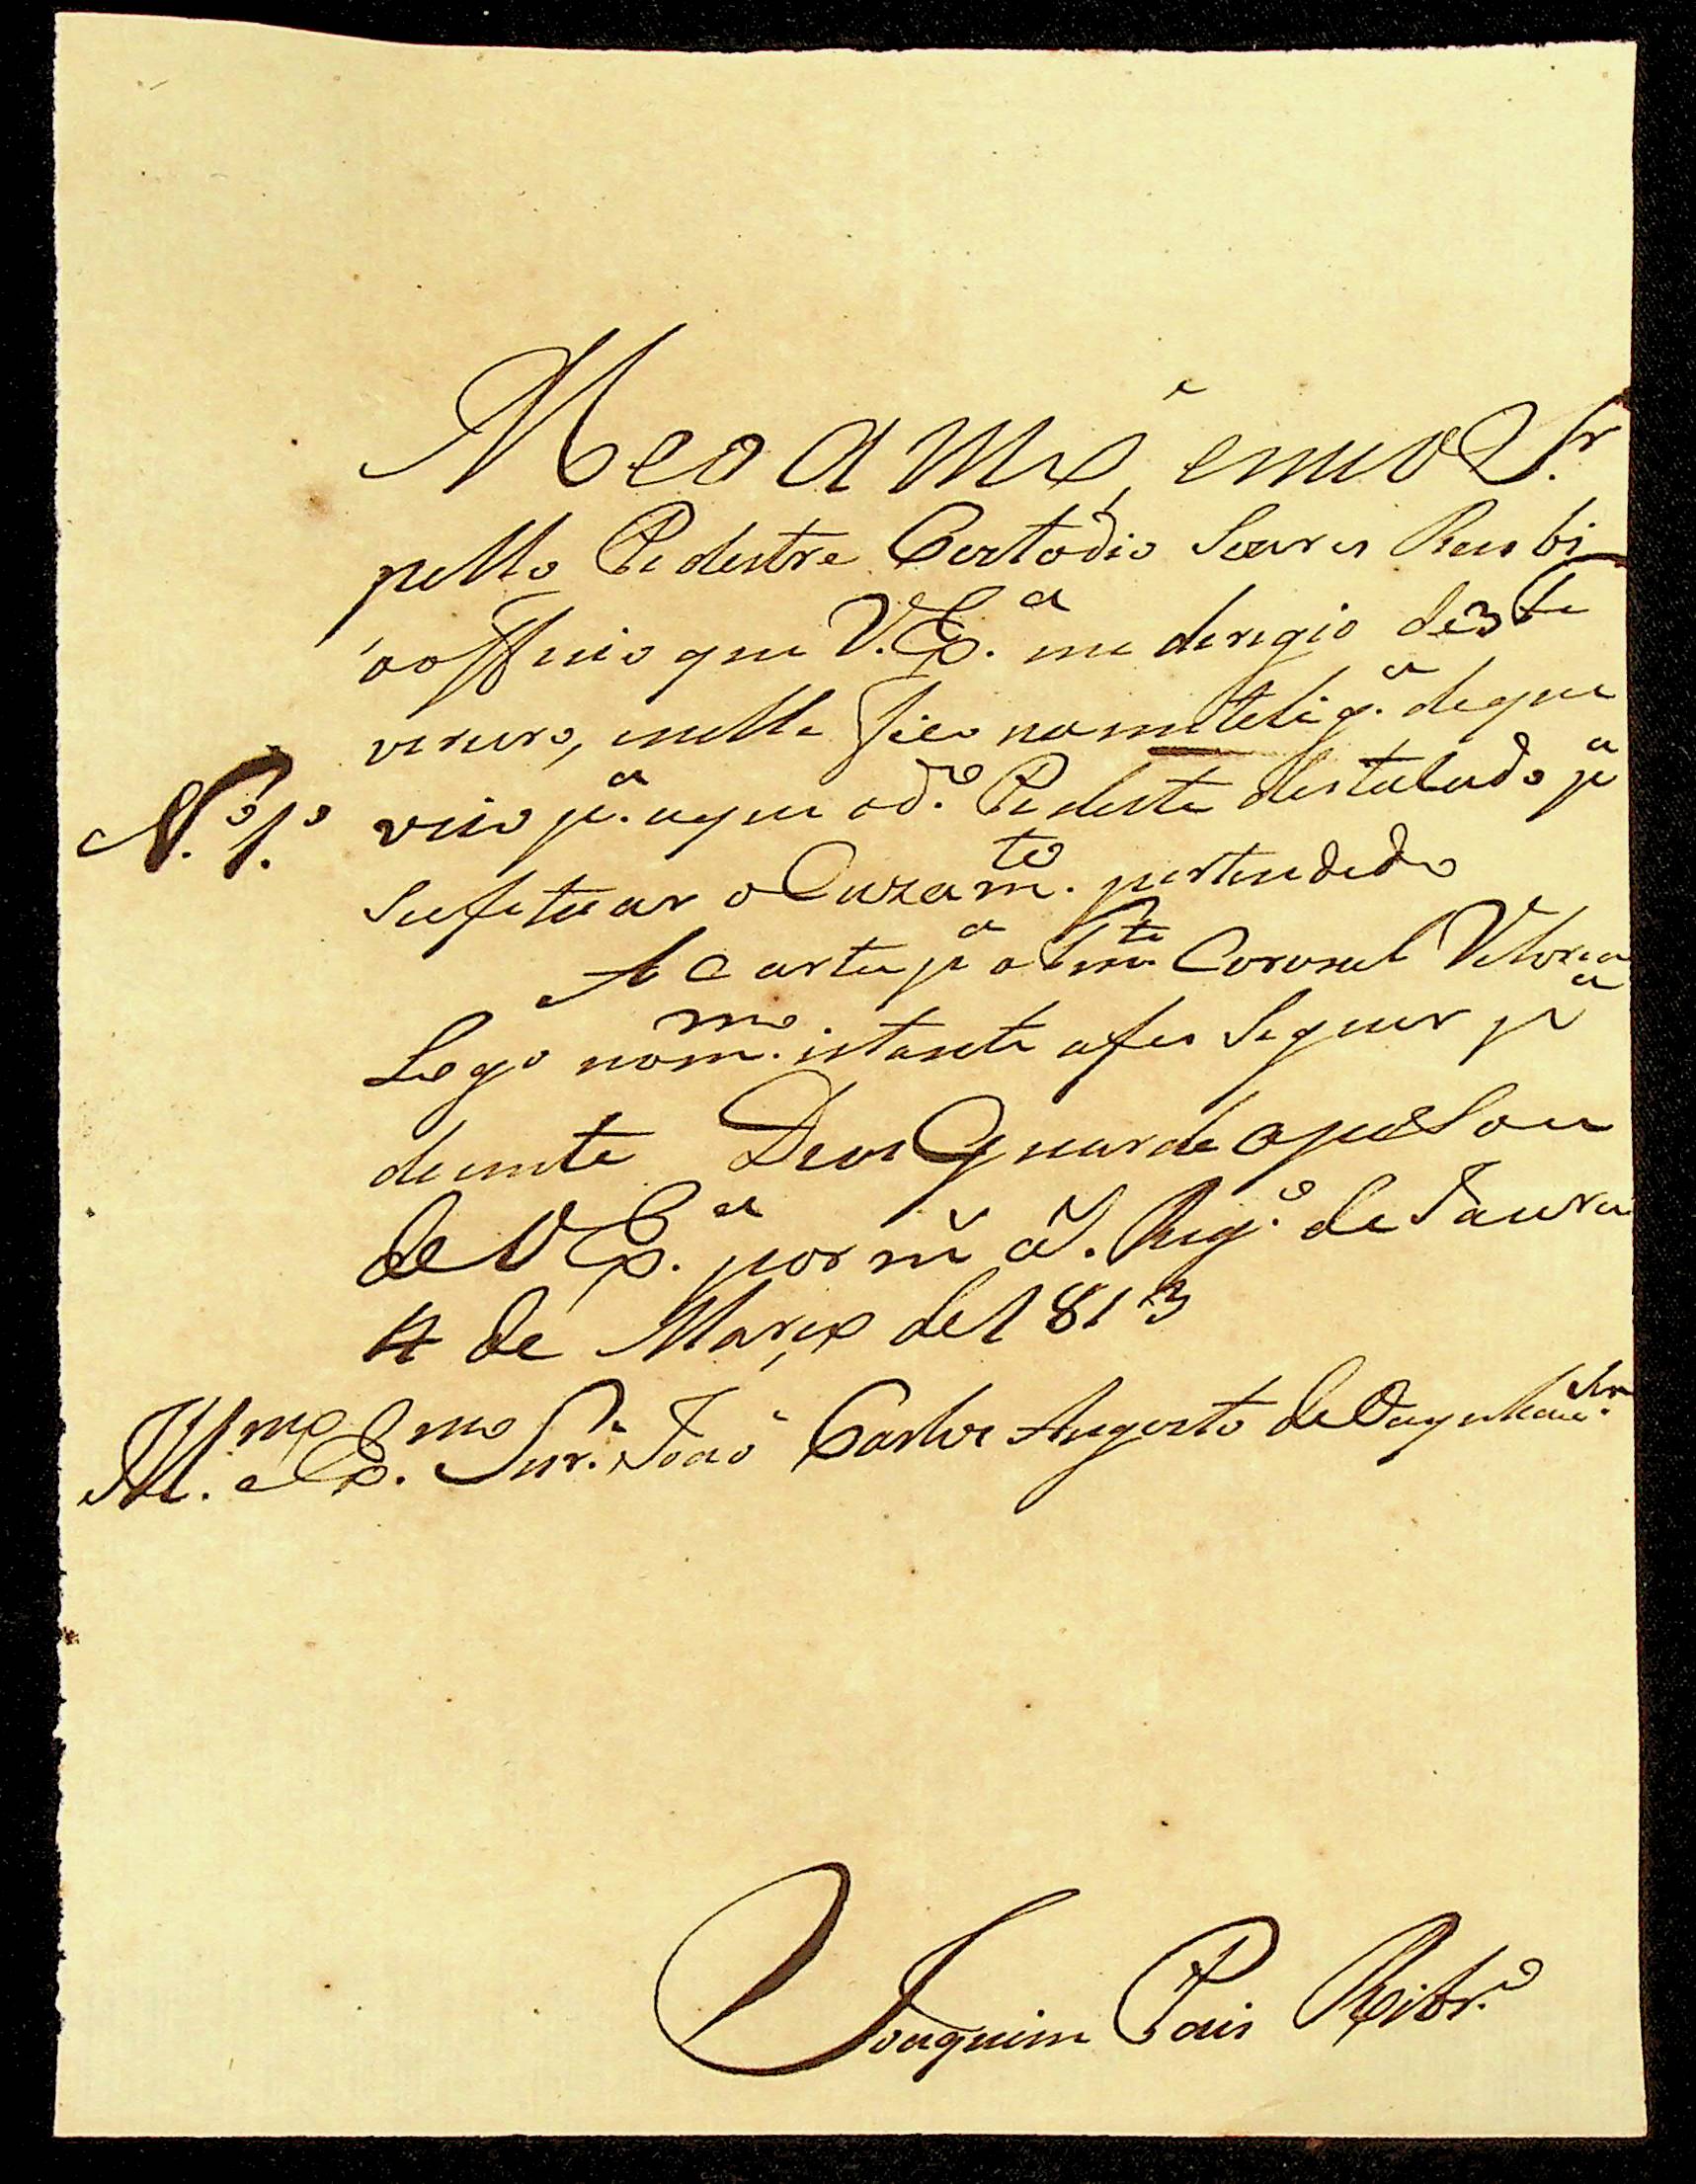 Meo amo, e meo Sr.
pello Pedestre Costodio Soares Recibi
oofficio que V. Ex.ª me deregio de 3 de
vereiro, enelle fico na inteligª. deque
N.º 1.º veio pª. aqui o d.º Pedeste destacado pª
Sefetuar o Cazam.to pertendido
A Carta pª o Tn.te Coronel
Logo nom.mo istante afis Seguir pª
diante Deos Guarde apesoa
de V Ex.ª por m.s a.s Reg.º de Tauru
4 de Março de 1813
Ill.mo e Ex.mo Snr. João Carlos Augosto de Oeynhausen
Joaquim Pais Ribr.º